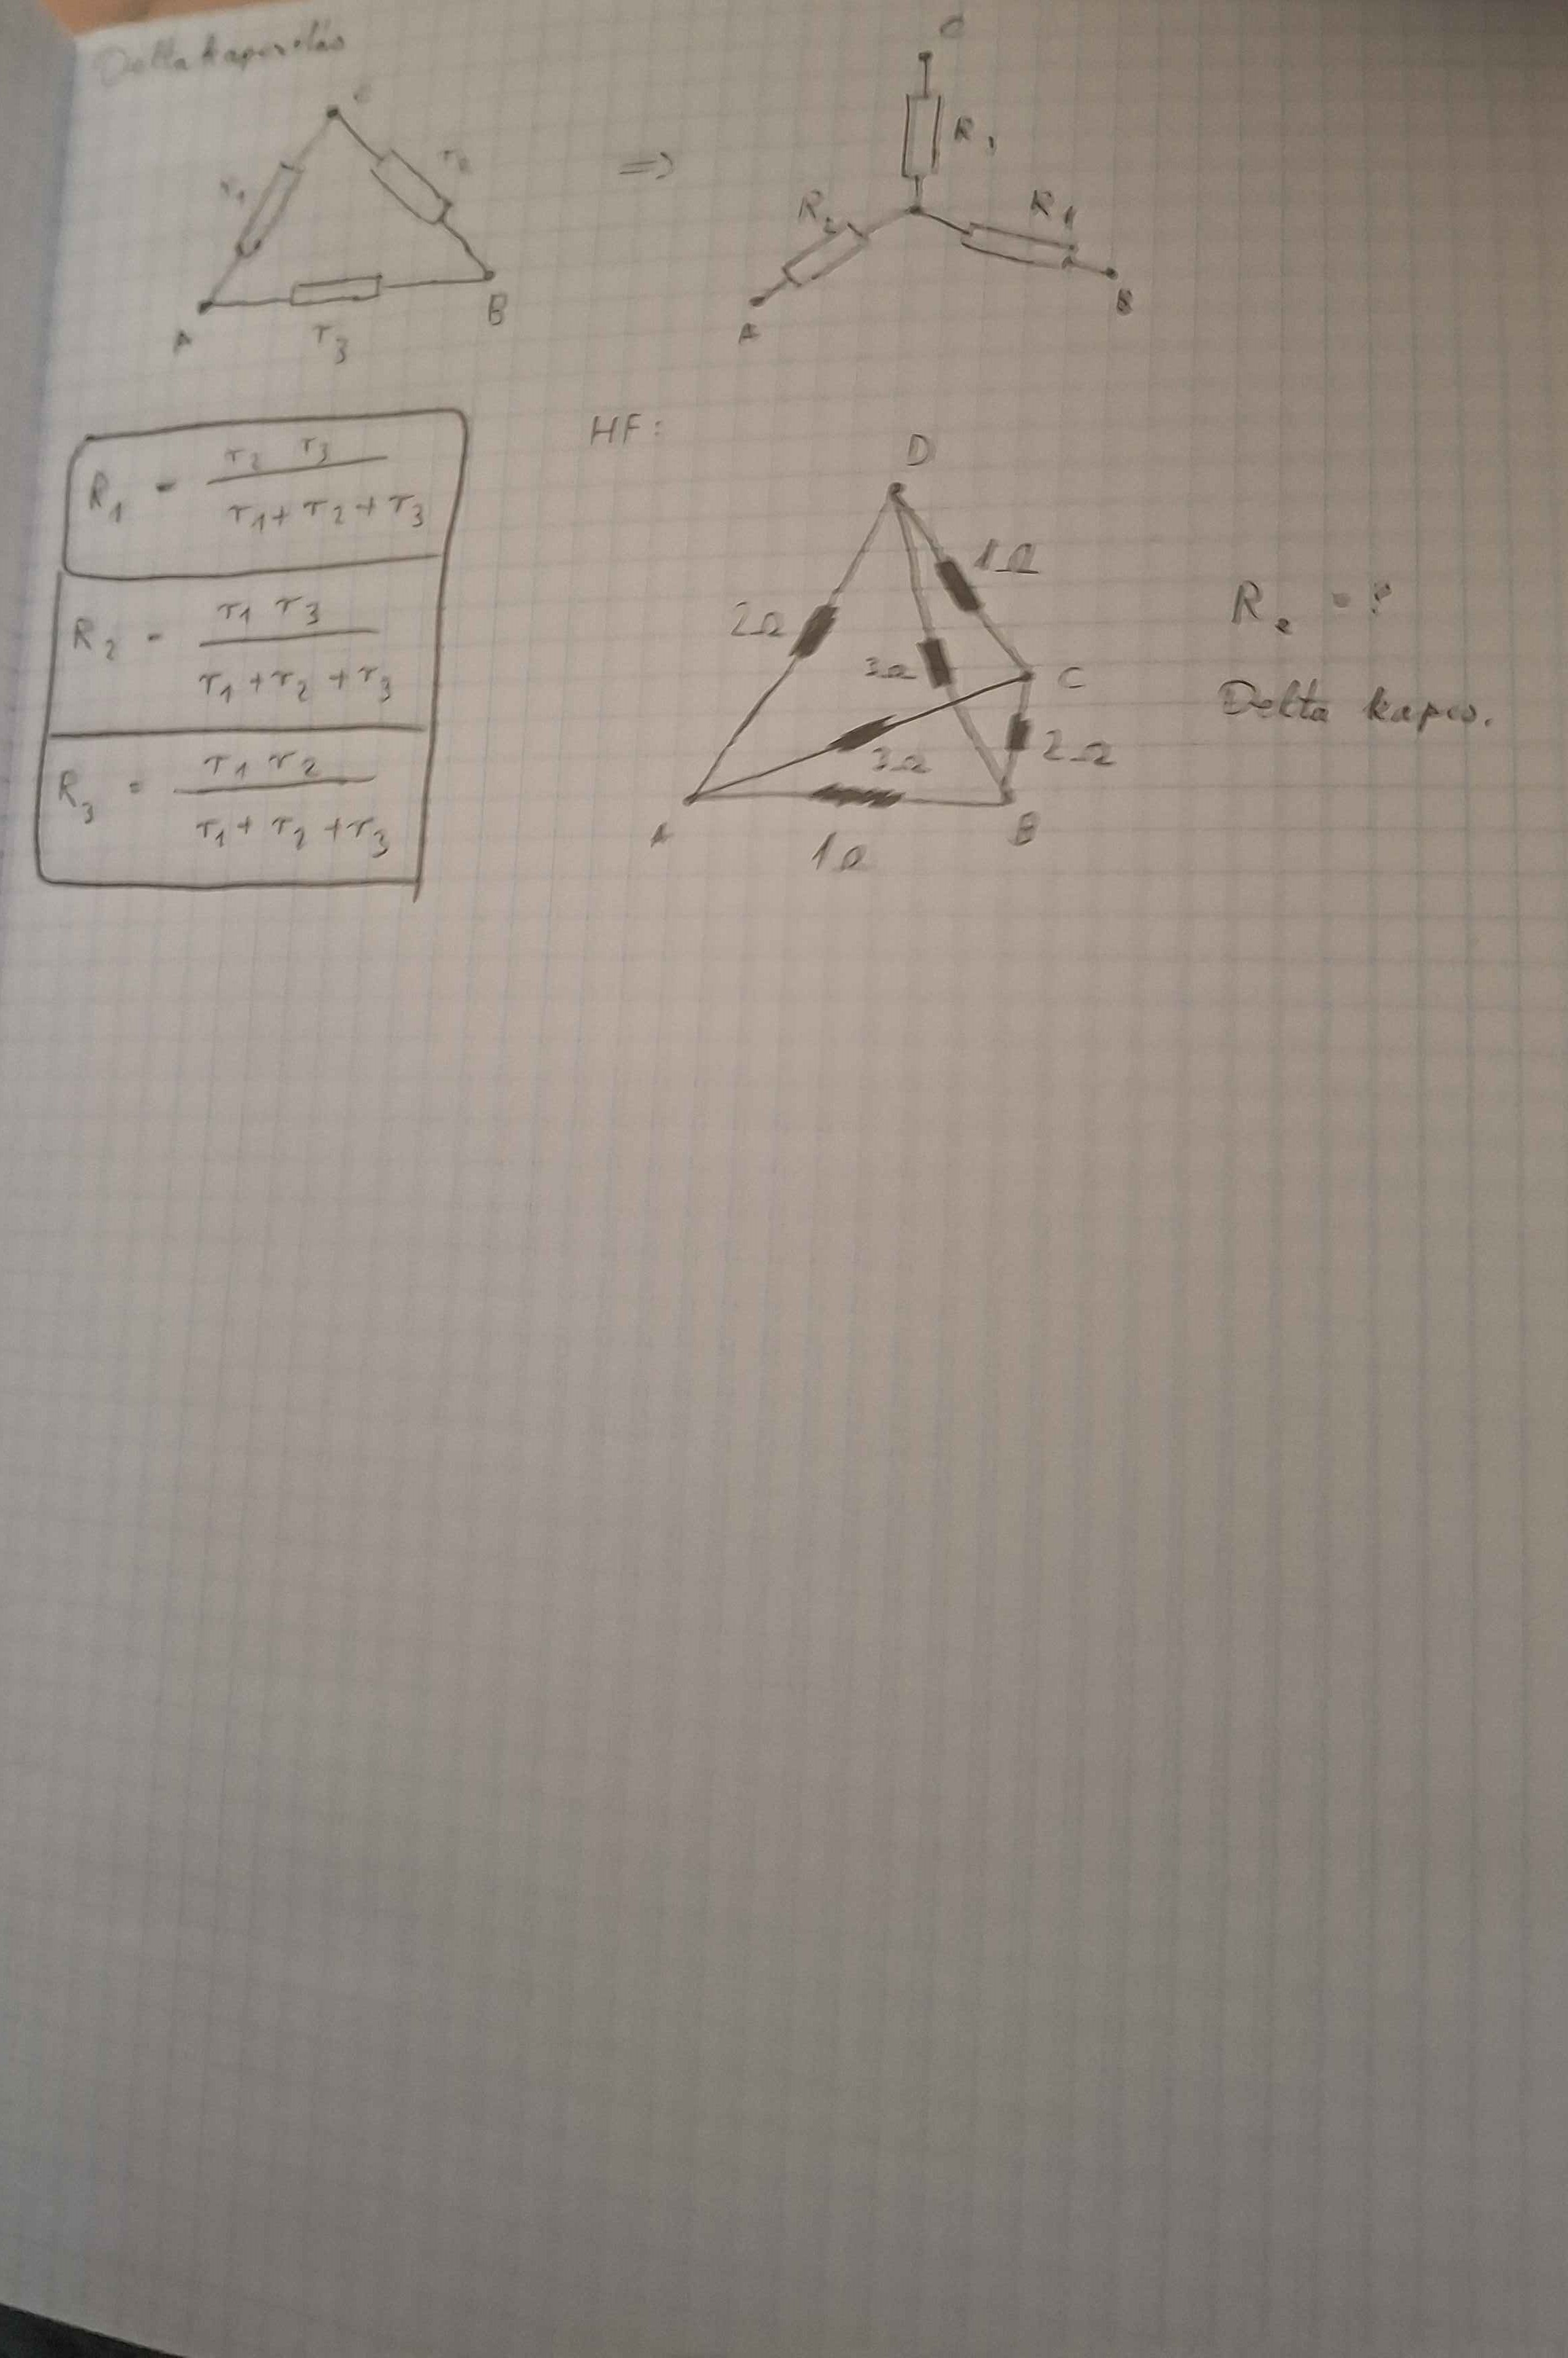 Delta kapcsolás
C
r1
r2
A
r3
B
=>
C
R3
R2
R1
A
B
R1 = r2 r3 / r1 + r2 + r3
R2 = r1 r3 / r1 + r2 + r3
R3 = r1 r2 / r1 + r2 + r3
HF:
D
2Ω
1Ω
3Ω
C
3Ω
2Ω
A
B
1Ω
Re = ?
Delta kapcs.